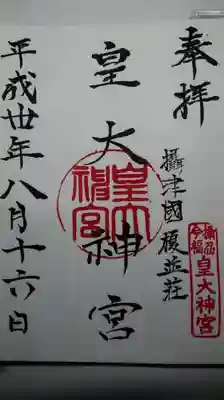 奉拝
攝津國榎並荘
皇大神宮
平成廿年八月十六日
皇大神宮
皇大神宮